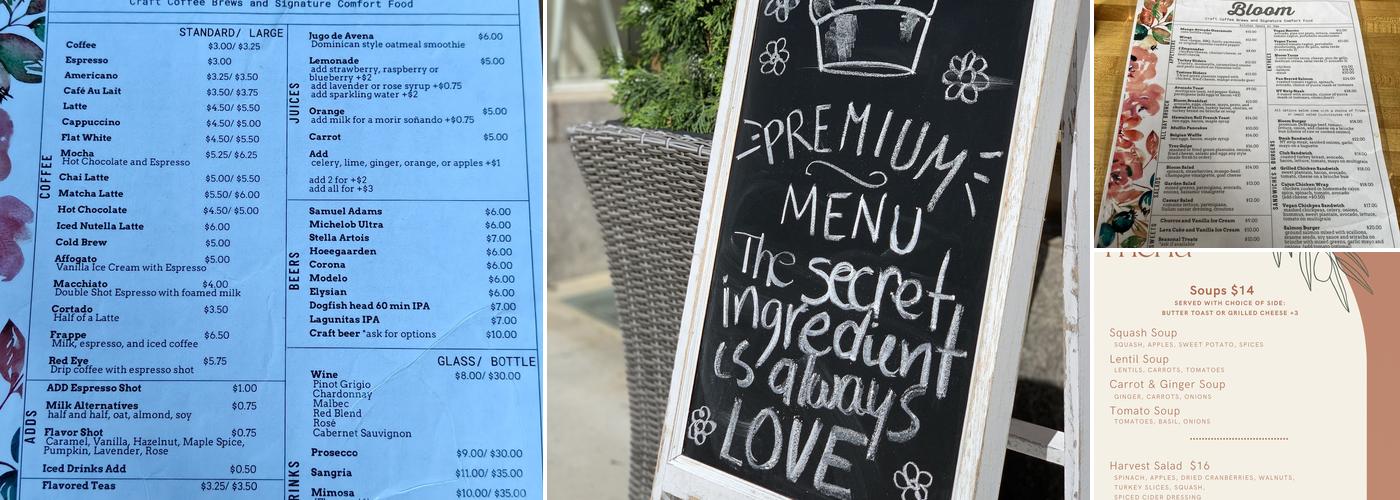 Craft Coffee Brews and Signature Comfort Food
STANDARD/ LARGE
COFFEE
Coffee $3.00/ $3.25
Espresso $3.00
Americano $3.25/ $3.50
Café Au Lait $3.50/ $3.75
Latte $4.50/ $5.50
Cappuccino $4.50/ $5.00
Flat White $4.50/ $5.50
Mocha $5.25/ $6.25
Hot Chocolate and Espresso
Chai Latte $5.00/ $5.50
Matcha Latte $5.50/ $6.00
Hot Chocolate $4.50/ $5.00
Iced Nutella Latte $6.00
Cold Brew $5.00
Affogato $5.00
Vanilla Ice Cream with Espresso
Macchiato $4.00
Double Shot Espresso with foamed milk
Cortado $3.50
Half of a Latte
Frappe $6.50
Milk, espresso, and iced coffee
Red Eye $5.75
Drip coffee with espresso shot
ADDS
ADD Espresso Shot $1.00
Milk Alternatives $0.75
half and half, oat, almond, soy
Flavor Shot $0.75
Caramel, Vanilla, Hazelnut, Maple Spice,
Pumpkin, Lavender, Rose
Iced Drinks Add $0.50
Flavored Teas $3.25/ $3.50
JUICES
Jugo de Avena $6.00
Dominican style oatmeal smoothie
Lemonade $5.00
add strawberry, raspberry or
blueberry +$2
add lavender or rose syrup +$0.75
add sparkling water +$2
Orange $5.00
add milk for a morir soñando +$0.75
Carrot $5.00
Add
celery, lime, ginger, orange, or apples +$1
add 2 for +$2
add all for +$3
BEERS
Samuel Adams $6.00
Michelob Ultra $6.00
Stella Artois $7.00
Hoeegaarden $6.00
Corona $6.00
Modelo $6.00
Elysian $6.00
Dogfish head 60 min IPA $7.00
Lagunitas IPA $7.00
Craft beer *ask for options $10.00
GLASS/ BOTTLE
RINKS
Wine $8.00/ $30.00
Pinot Grigio
Chardonnay
Malbec
Red Blend
Rosé
Cabernet Sauvignon
Prosecco $9.00/ $30.00
Sangria $11.00/ $35.00
Mimosa $10.00/ $35.00
PREMIUM
MENU
The secret
ingredient
is always
LOVE
Bloom
Craft Coffee Brews and Signature Comfort Food
Turkey Sliders
Avocado Toast
Bloom Breakfast
Hawaiian Roll French Toast
Muffin Pancakes
Belgian Waffle
SALADS
Bloom Salad
Garden Salad
Caesar Salad
Churros and Vanilla Ice Cream
Lava Cake and Vanilla Ice Cream
Seasonal Treats
ENTREES
Pan Seared Salmon
NY Strip Steak
SANDWICHES & BURGERS
Bloom Burger
Steak Sandwich
Club Sandwich
Grilled Chicken Sandwich
Cajun Chicken Wrap
Vegan Chickpea Sandwich
Salmon Burger
menu
Soups $14
SERVED WITH CHOICE OF SIDE:
BUTTER TOAST OR GRILLED CHEESE +3
Squash Soup
SQUASH, APPLES, SWEET POTATO, SPICES
Lentil Soup
LENTILS, CARROTS, TOMATOES
Carrot & Ginger Soup
GINGER, CARROTS, ONIONS
Tomato Soup
TOMATOES, BASIL, ONIONS
Harvest Salad $16
SPINACH, APPLES, DRIED CRANBERRIES, WALNUTS,
TURKEY SLICES, SQUASH,
SPICED CIDER DRESSING